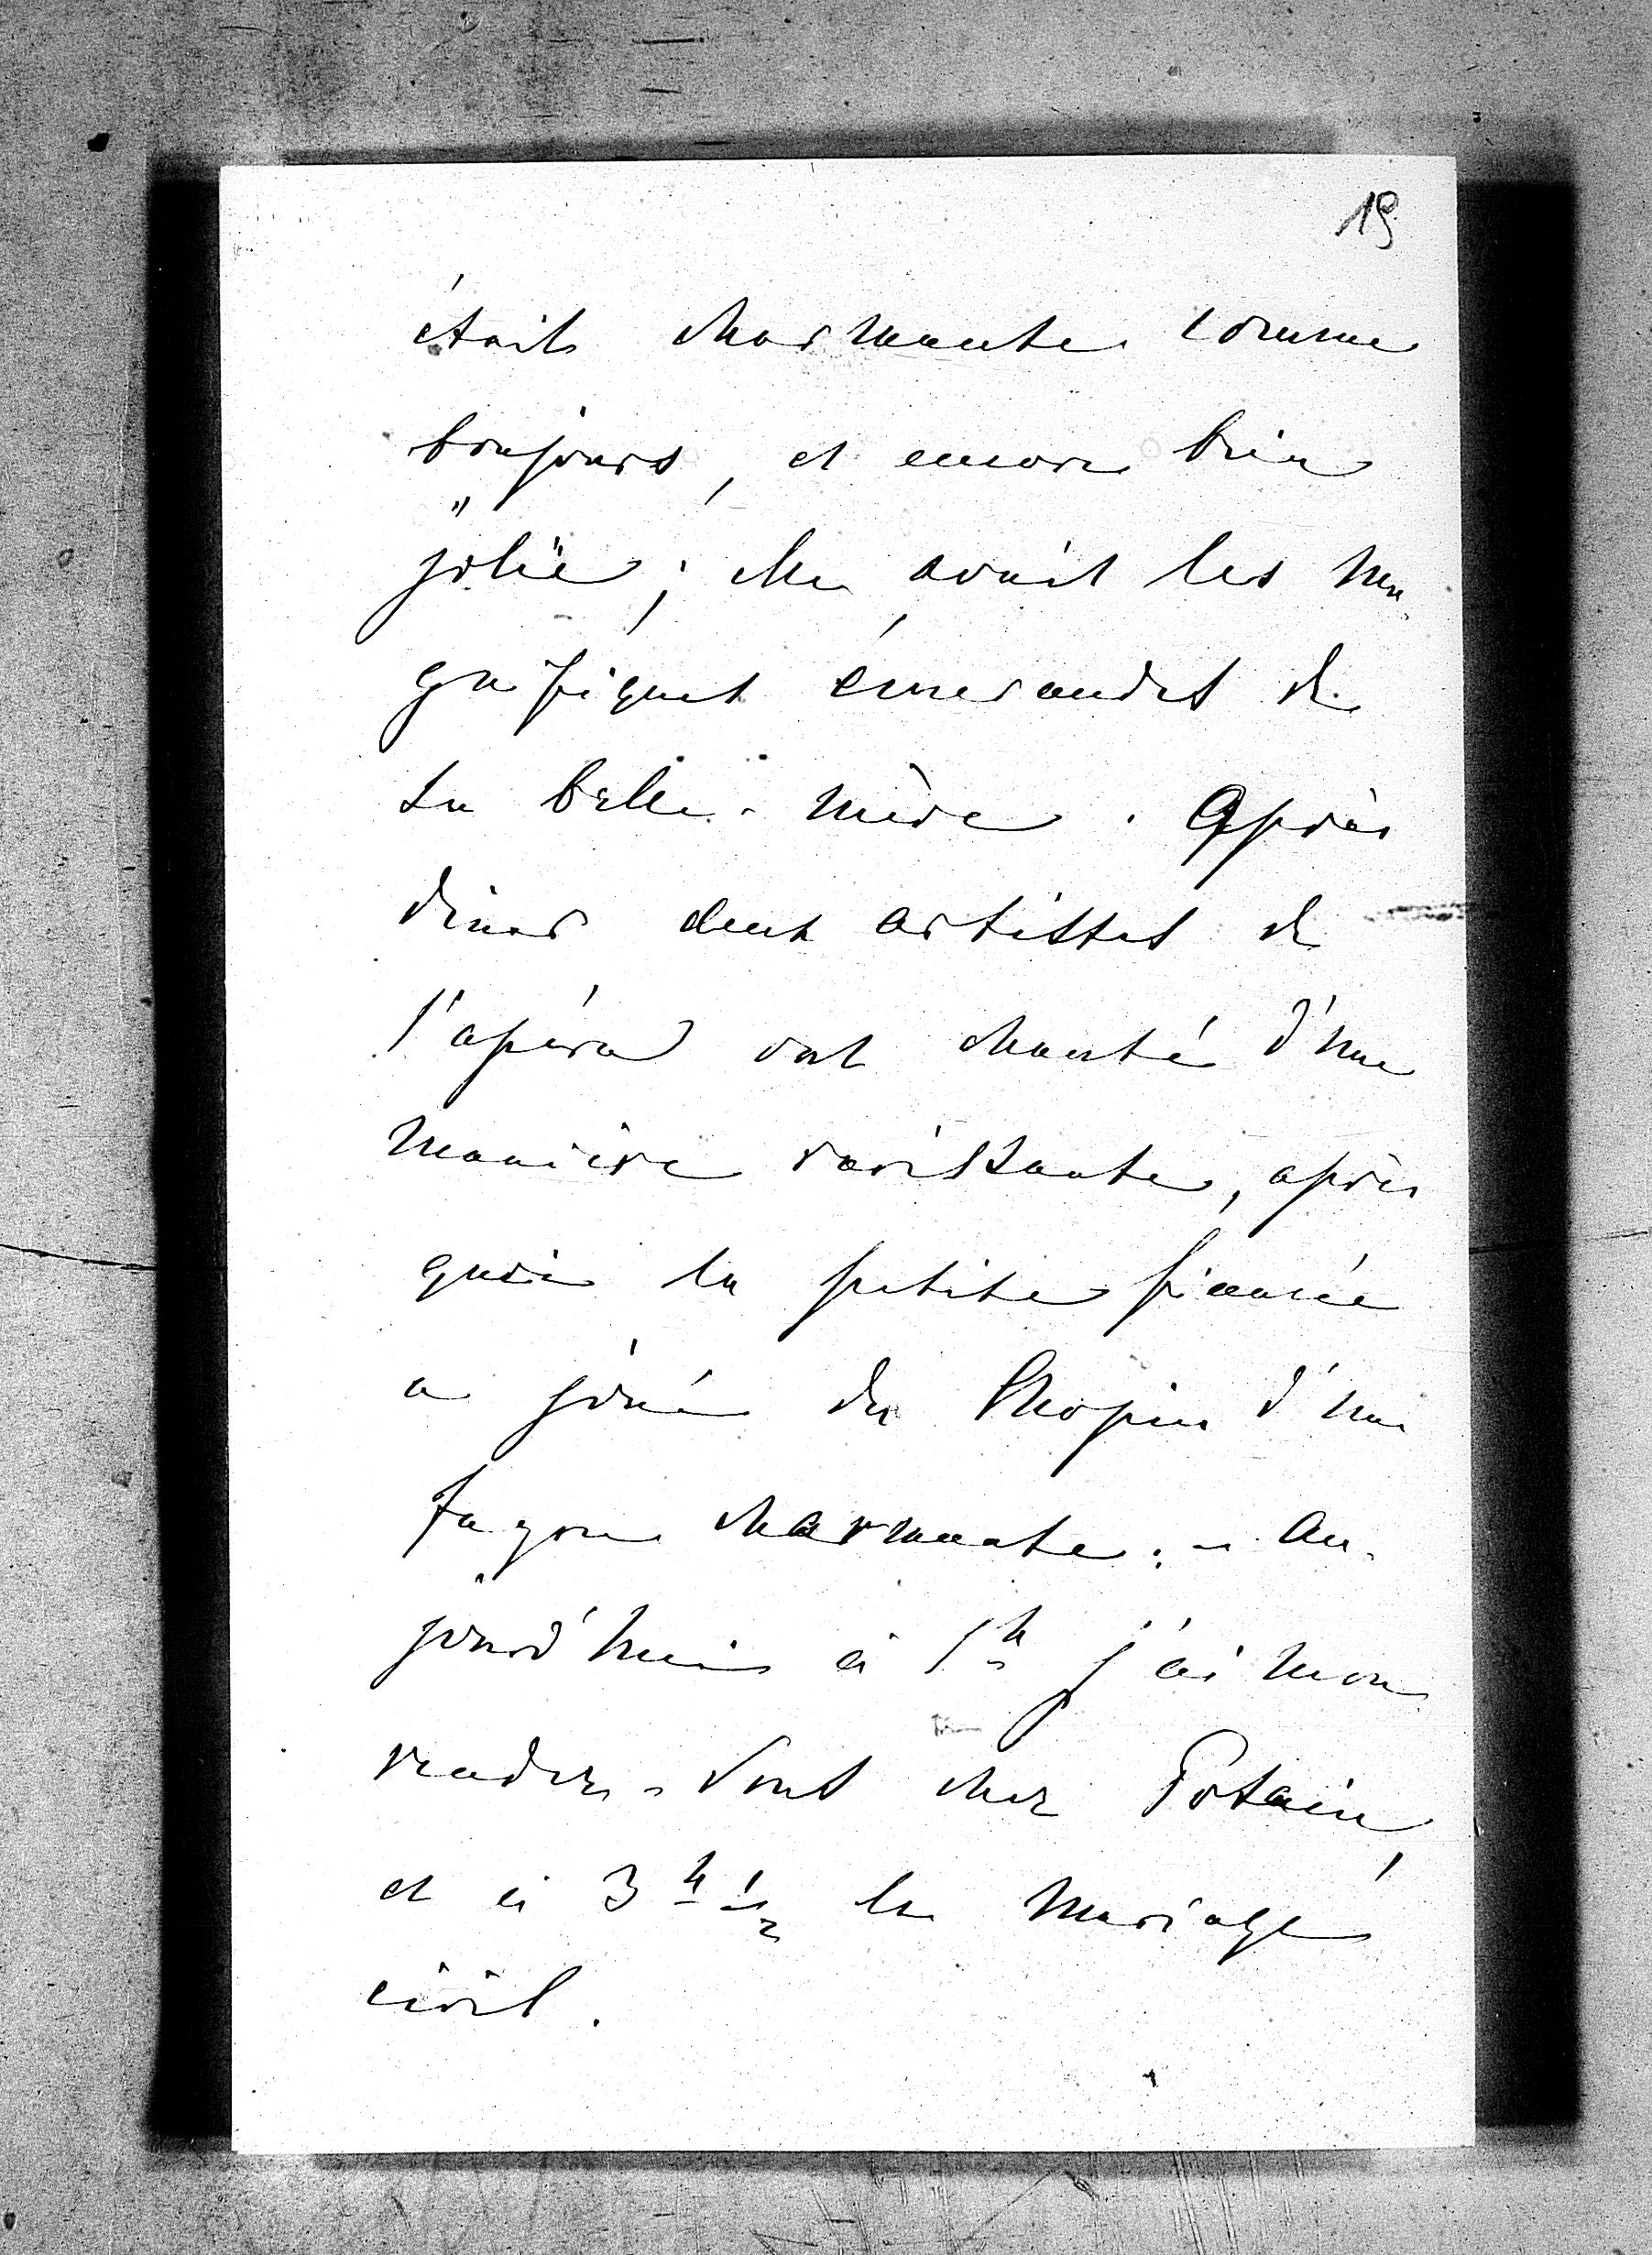 19
était charmante comme
toujours, et encore bien
jolie; elle avait les ma-
gnifiques émeraudes de
sa belle-mère. Après
diner deux artistes de
l'opéra ont chanté d'une
manière ravissante, après
quoi la petite fiancée
a joué du Chopin d'une
façon charmante. - Au-
jourd'hui à 1h j'ai mon
rendez-vous chez Potain,
et à 3h 1/2 le mariage
civil.